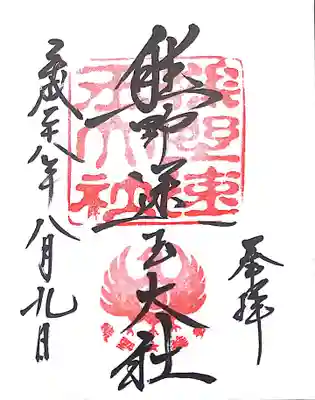 奉拝
熊野速玉大社
平成二十八年八月九日
熊野速
玉大社